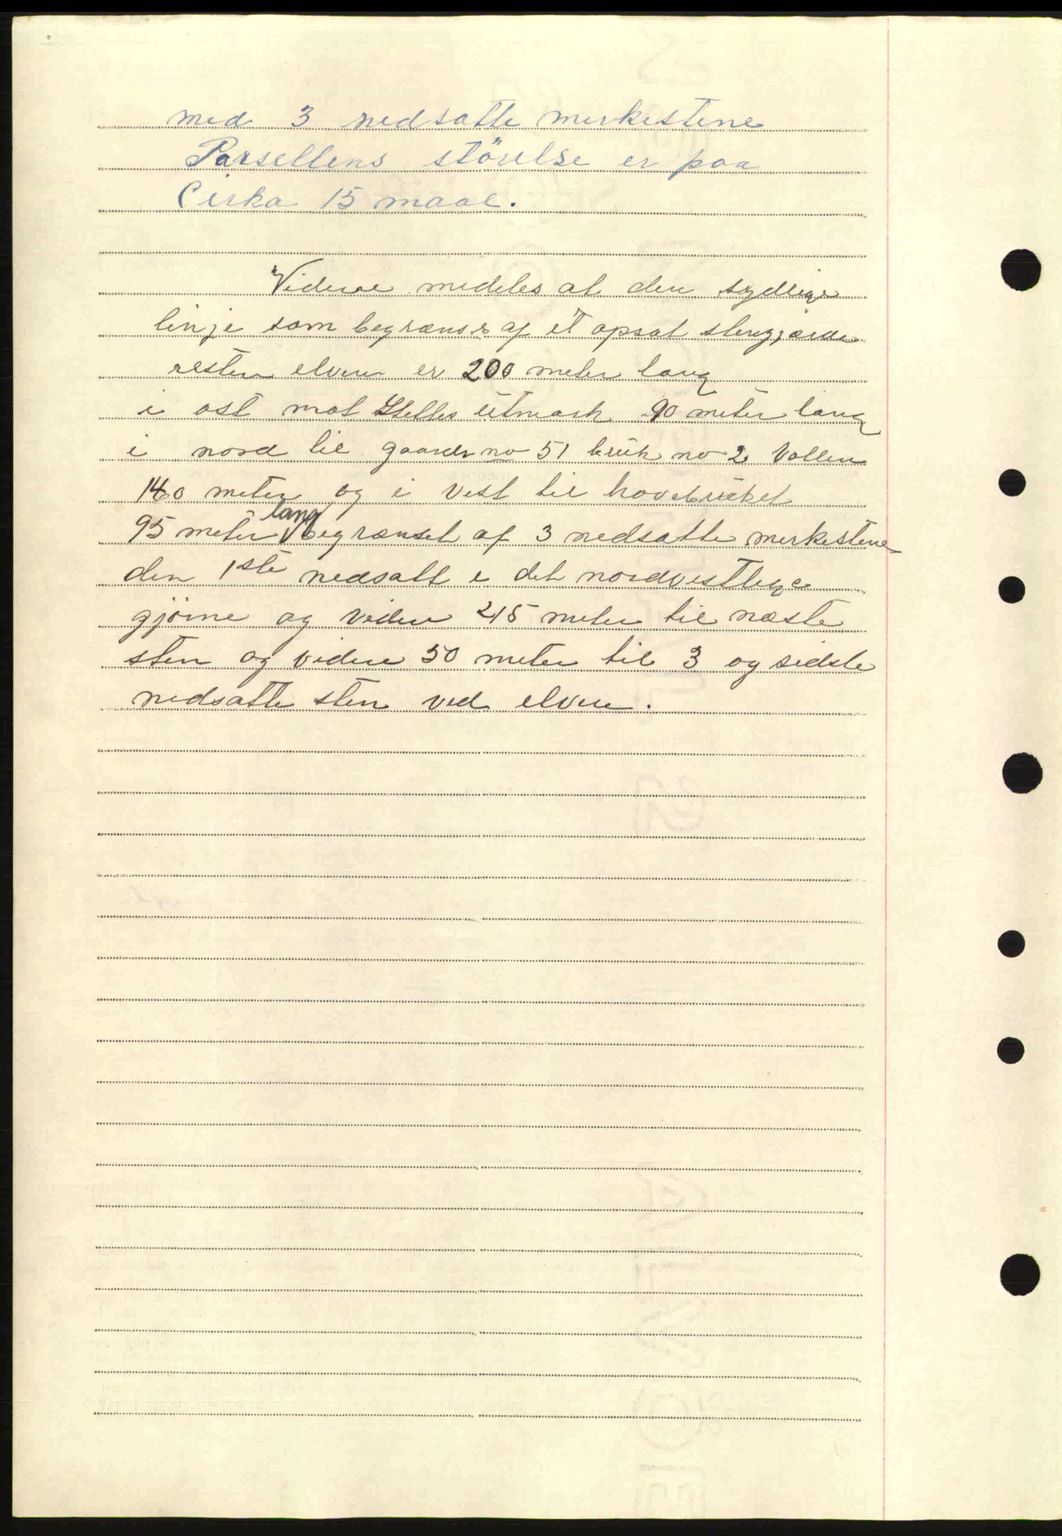 med 3 nedsatte merkestene
Parsellens störelse er paa
Cirka 15 maal.
Videre medeles at den sydlige
linje som begrænses af et opsat stengjærde
resten elven er 200 meter lang
i ost mot utmark 90 meter lang
i nord til gaards no 51 bruk no 2 Vollen
140 meter og i vest til hovebruket
95 meter lang begrænset af 3 nedsatte merkestene
den 1ste nedsatt i det nordvestlige
gjörne og videre 45 meter til næste
sten og videre 50 meter til 3 og sidste
nedsatte sten ved elven.